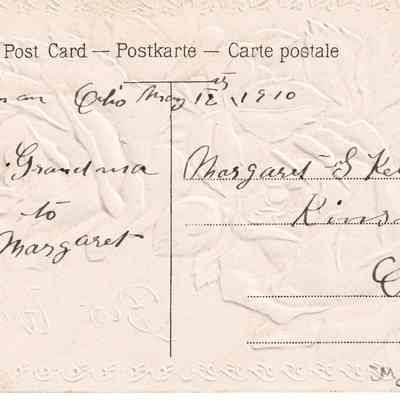 Post Card — Postkarte — Carte postale
Ohio May 12th, 1910
Grandma
to
Margaret
Margaret S
Kins